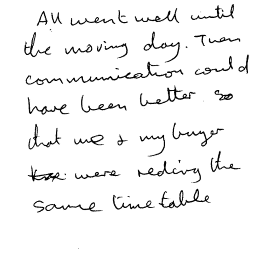 All went well until
the moving day. Then
communication could
have been better so
that me & my buyer
were reding the
same time table